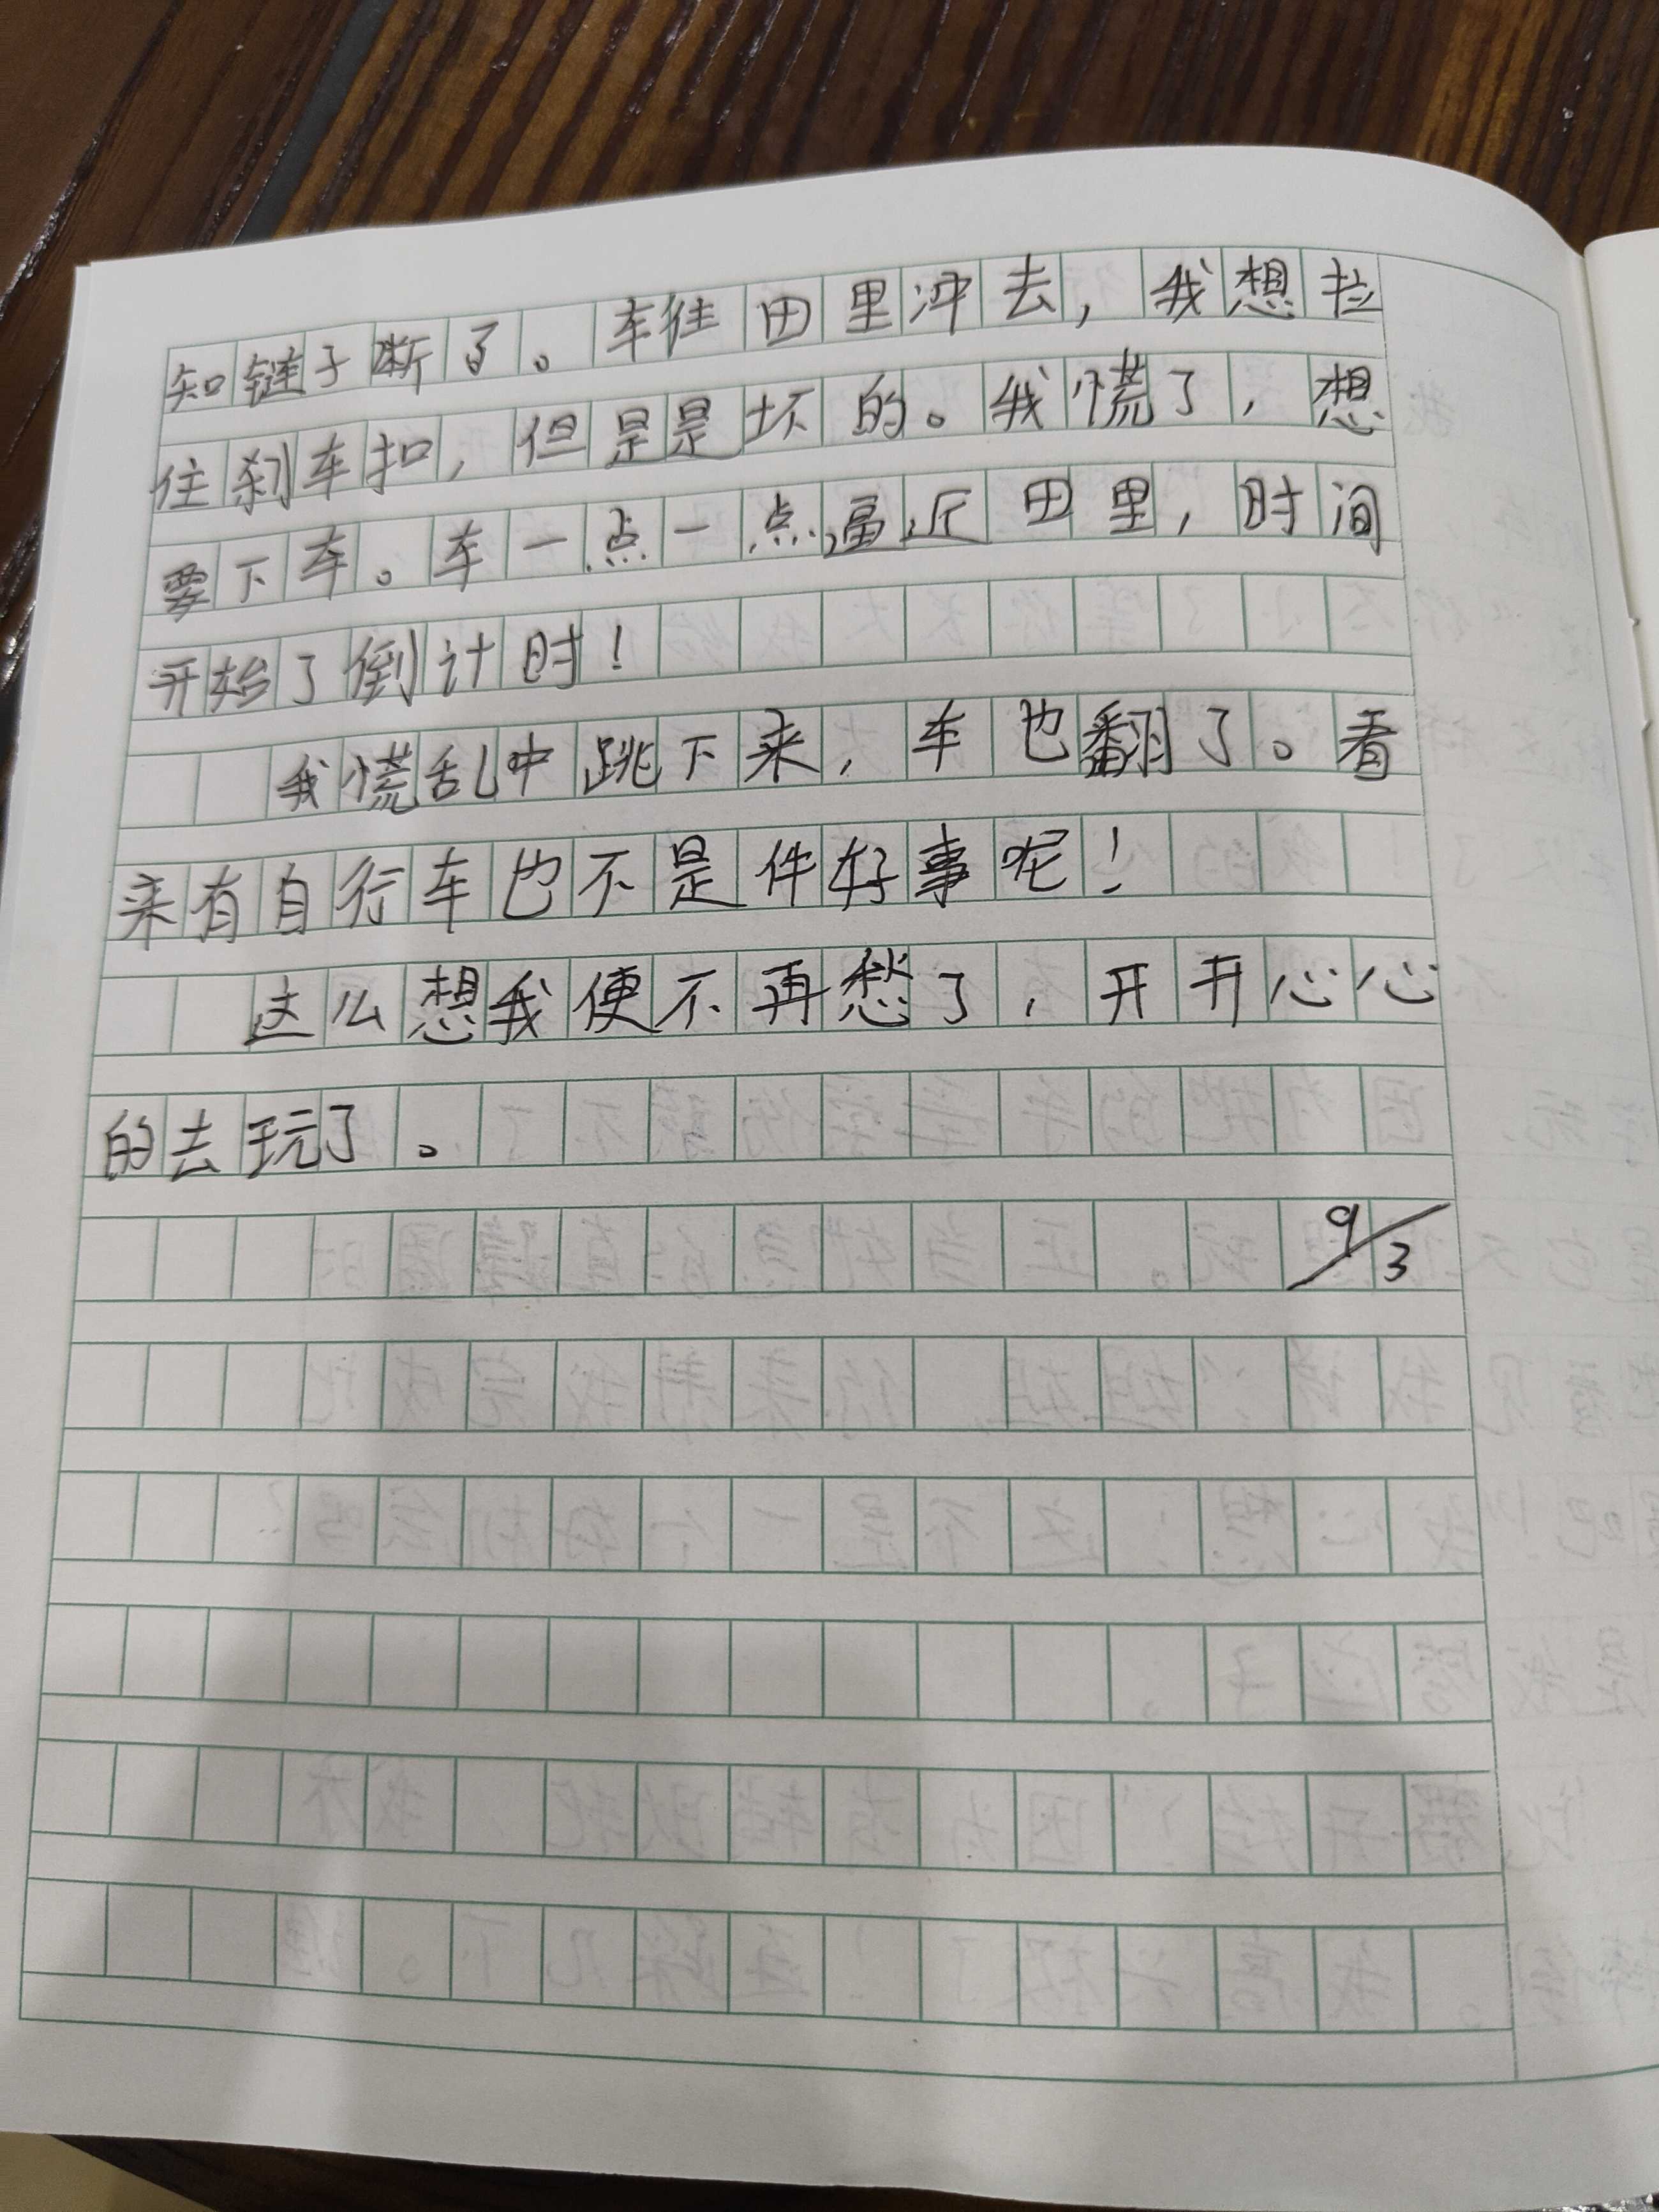 知链子断了。车往田里冲去，我想拉
住刹车扣，但是是坏的。我慌了，想
要下车。车一点一点逼近田里，时间
开始了倒计时！
我慌乱中跳下来，车也翻了。看
来有自行车也不是件好事呢！
这么想我便不再愁了，开开心心
的去玩了。
9/3